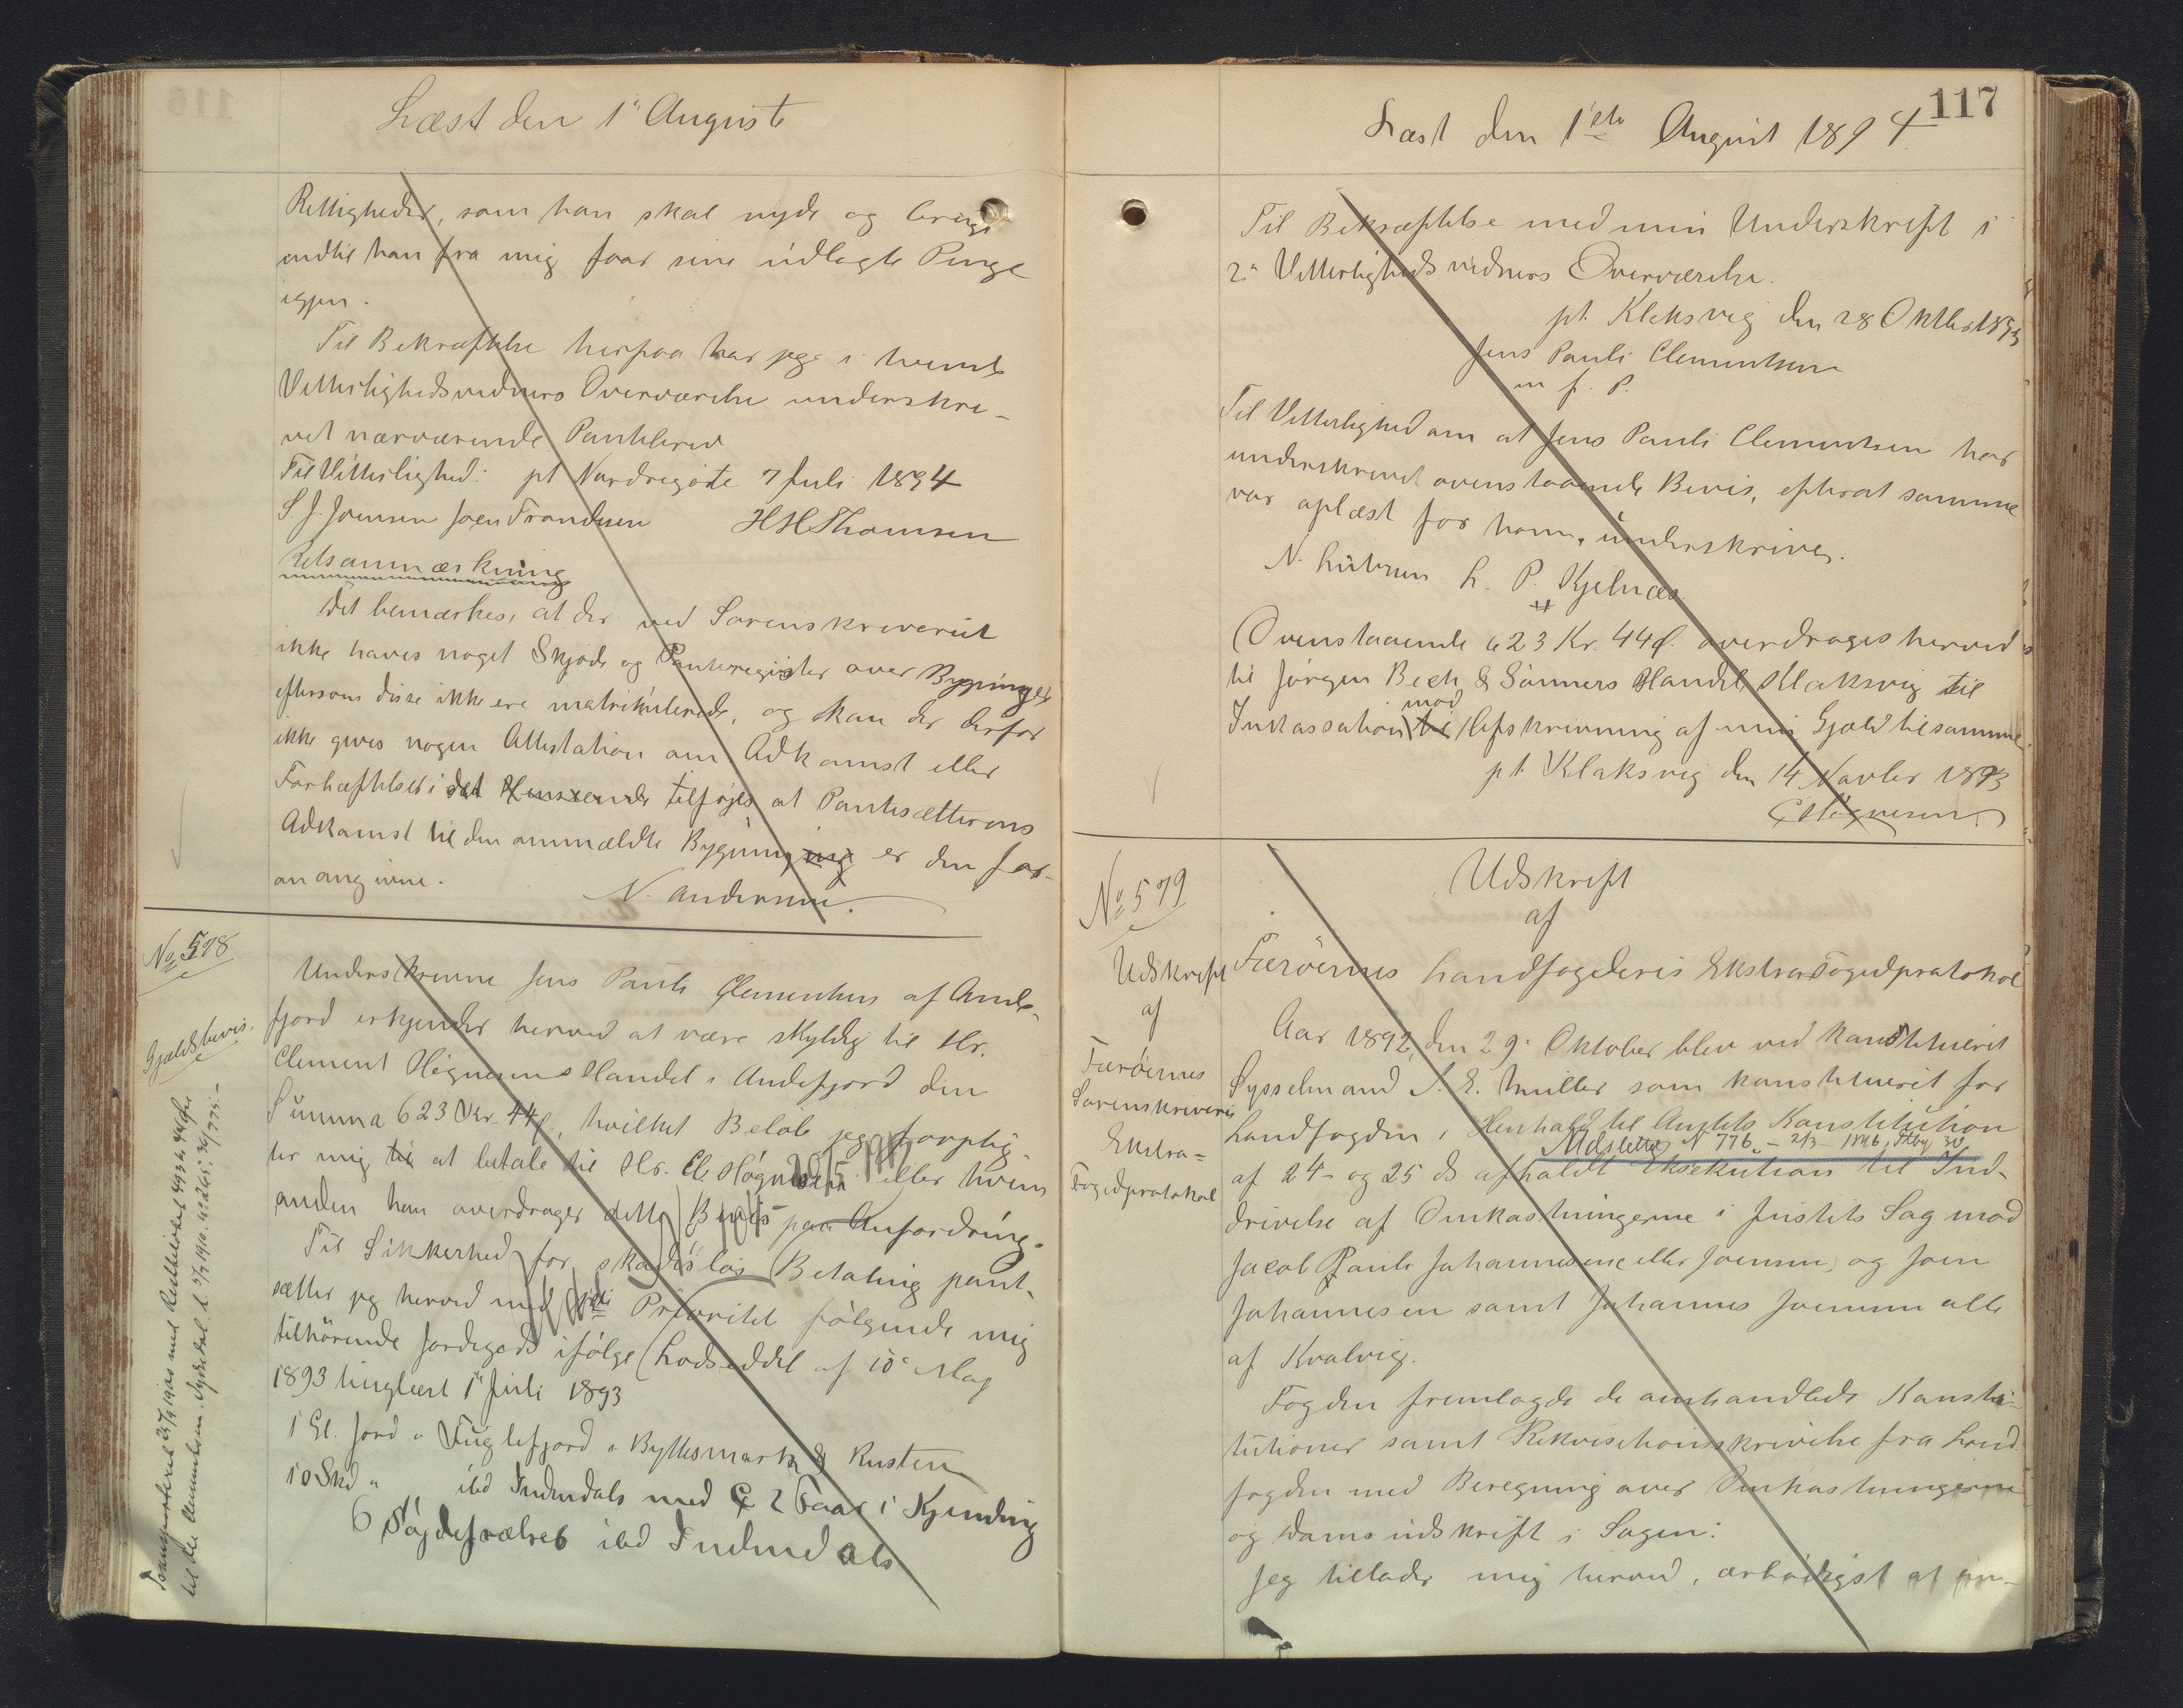 Læst den 1' Auguste
Rettigheder, som han skal nyde og bruge
indtil han fra mig faar sine udlagte Penge
igjen.
Til Bekræftelse herpaa har jeg i tvende
Vitterlighedsvidners Overværelse underskre-
vet nærværende Pantebrev
Til Vitterlighed: pt Nordregøte 7 Juli 1894
S. J. Joensen Joen Trondesen HHThomsen
Retsanmærkning
Det bemærkes, at der ved Sorenskriveriet
ikke haves noget Skjøde og Panteregister over Bygninger
eftersom disse ikke ere matrikulerede, og kan der derfor
ikke gives nogen Attestation om Adkomst eller
Forhæftelser i det tilføjes at Pantsætterens
Adkomst til den anmældte Bygning er den for-
an angivne.
N. Andersen.
No 578
Gjældsbevis.
Underskrevne Jens Pauli Clementsen af Ande-
fjord erkjender herved at være skyldig til Hr.
Clement Høgnesens Handel i Andefjord den
Summa 623 Kr. 44 ø, hvilket Beløb jeg forplig-
ter mig til at betale til Hr. Cl. Høgnesen eller hvem
anden han overdrager dette Bevis paa Anfordring.
Til Sikkerhed for skadesløs Betaling pant-
sætter jeg herved med Prioritet følgende mig
tilhørende Jordegods ifølge Lodseddel af 10' Maj
1893 tinglæst 1' Juli 1893
1 Gl. Jord i Fuglefjord i Byttesmark
10 Skd " ibd Indendals med 2 Faar i Kjending
6 ibd Indendals
117
Læst den 1ste August 1894
Til Bekræftelse med min Underskrift i
2' Vitterlighedsvidners Overværelse.
pt. Klaksvig den 28 Oktbr 1893
Jens Pauli Clementsen
m f. P.
Til Vitterlighed om at Jens Pauli Clementsen har
underskrevet ovenstaaende Bevis, efterat samme
var oplæst for ham, underskrives.
L. P. Kjelnæs
Ovenstaaende 623 Kr. 44 ø. overdrages herved
til Jørgen Bech & Sønners Handel Klaksvig til
Inkassation mod Afskrivning af min Gjæld til samme.
pt. Klaksvig den 14 Novbr 1893
C Høgnesen
No 579
Udskrift
af
Færöernes
Sorenskriveris
Ekstra=
Fogedprotokol
Udskrift
af
Færöernes Landfogederis Ekstra Fogedprotokol
Aar 1892, den 29' Oktober blev ved konstitueret
Sysselmand J. E. Müller som konstitueret for
Landfogden i Henhold til Amtets Konstitution
af 24- og 25 ds afholdt Eksekution til Ind-
drivelse af Omkostningerne i Justits Sag mod
Jacob Pauli Johannesen eller Joensen og Joen
Johannesen samt Johannes Joensen alle
af Kvalvig.
Fogden fremlagde de omhandlede Konsti-
tutioner samt Rekvisitionsskrivelse fra Land-
fogden med Beregning over Omkostningerne
og Domsudskrift i Sagen:
Jeg tillader mig herved, ærbødigst at